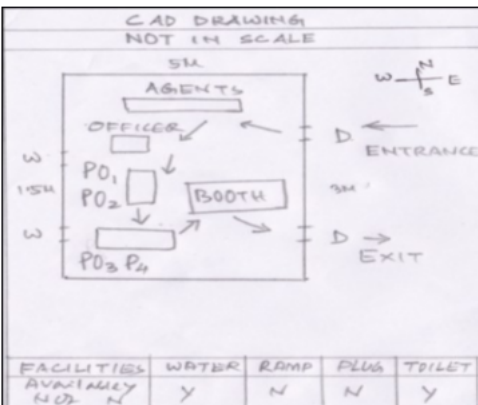 CAD DRAWING
NOT IN SCALE
5M
N
W E
S
AGENTS
OFFICER
D
ENTRANCE
W
PO1
1.5M
PO2
BOOTH
3M
W
D
EXIT
PO3 P4
FACILITIES WATER RAMP PLUG TOILET
Y N N Y